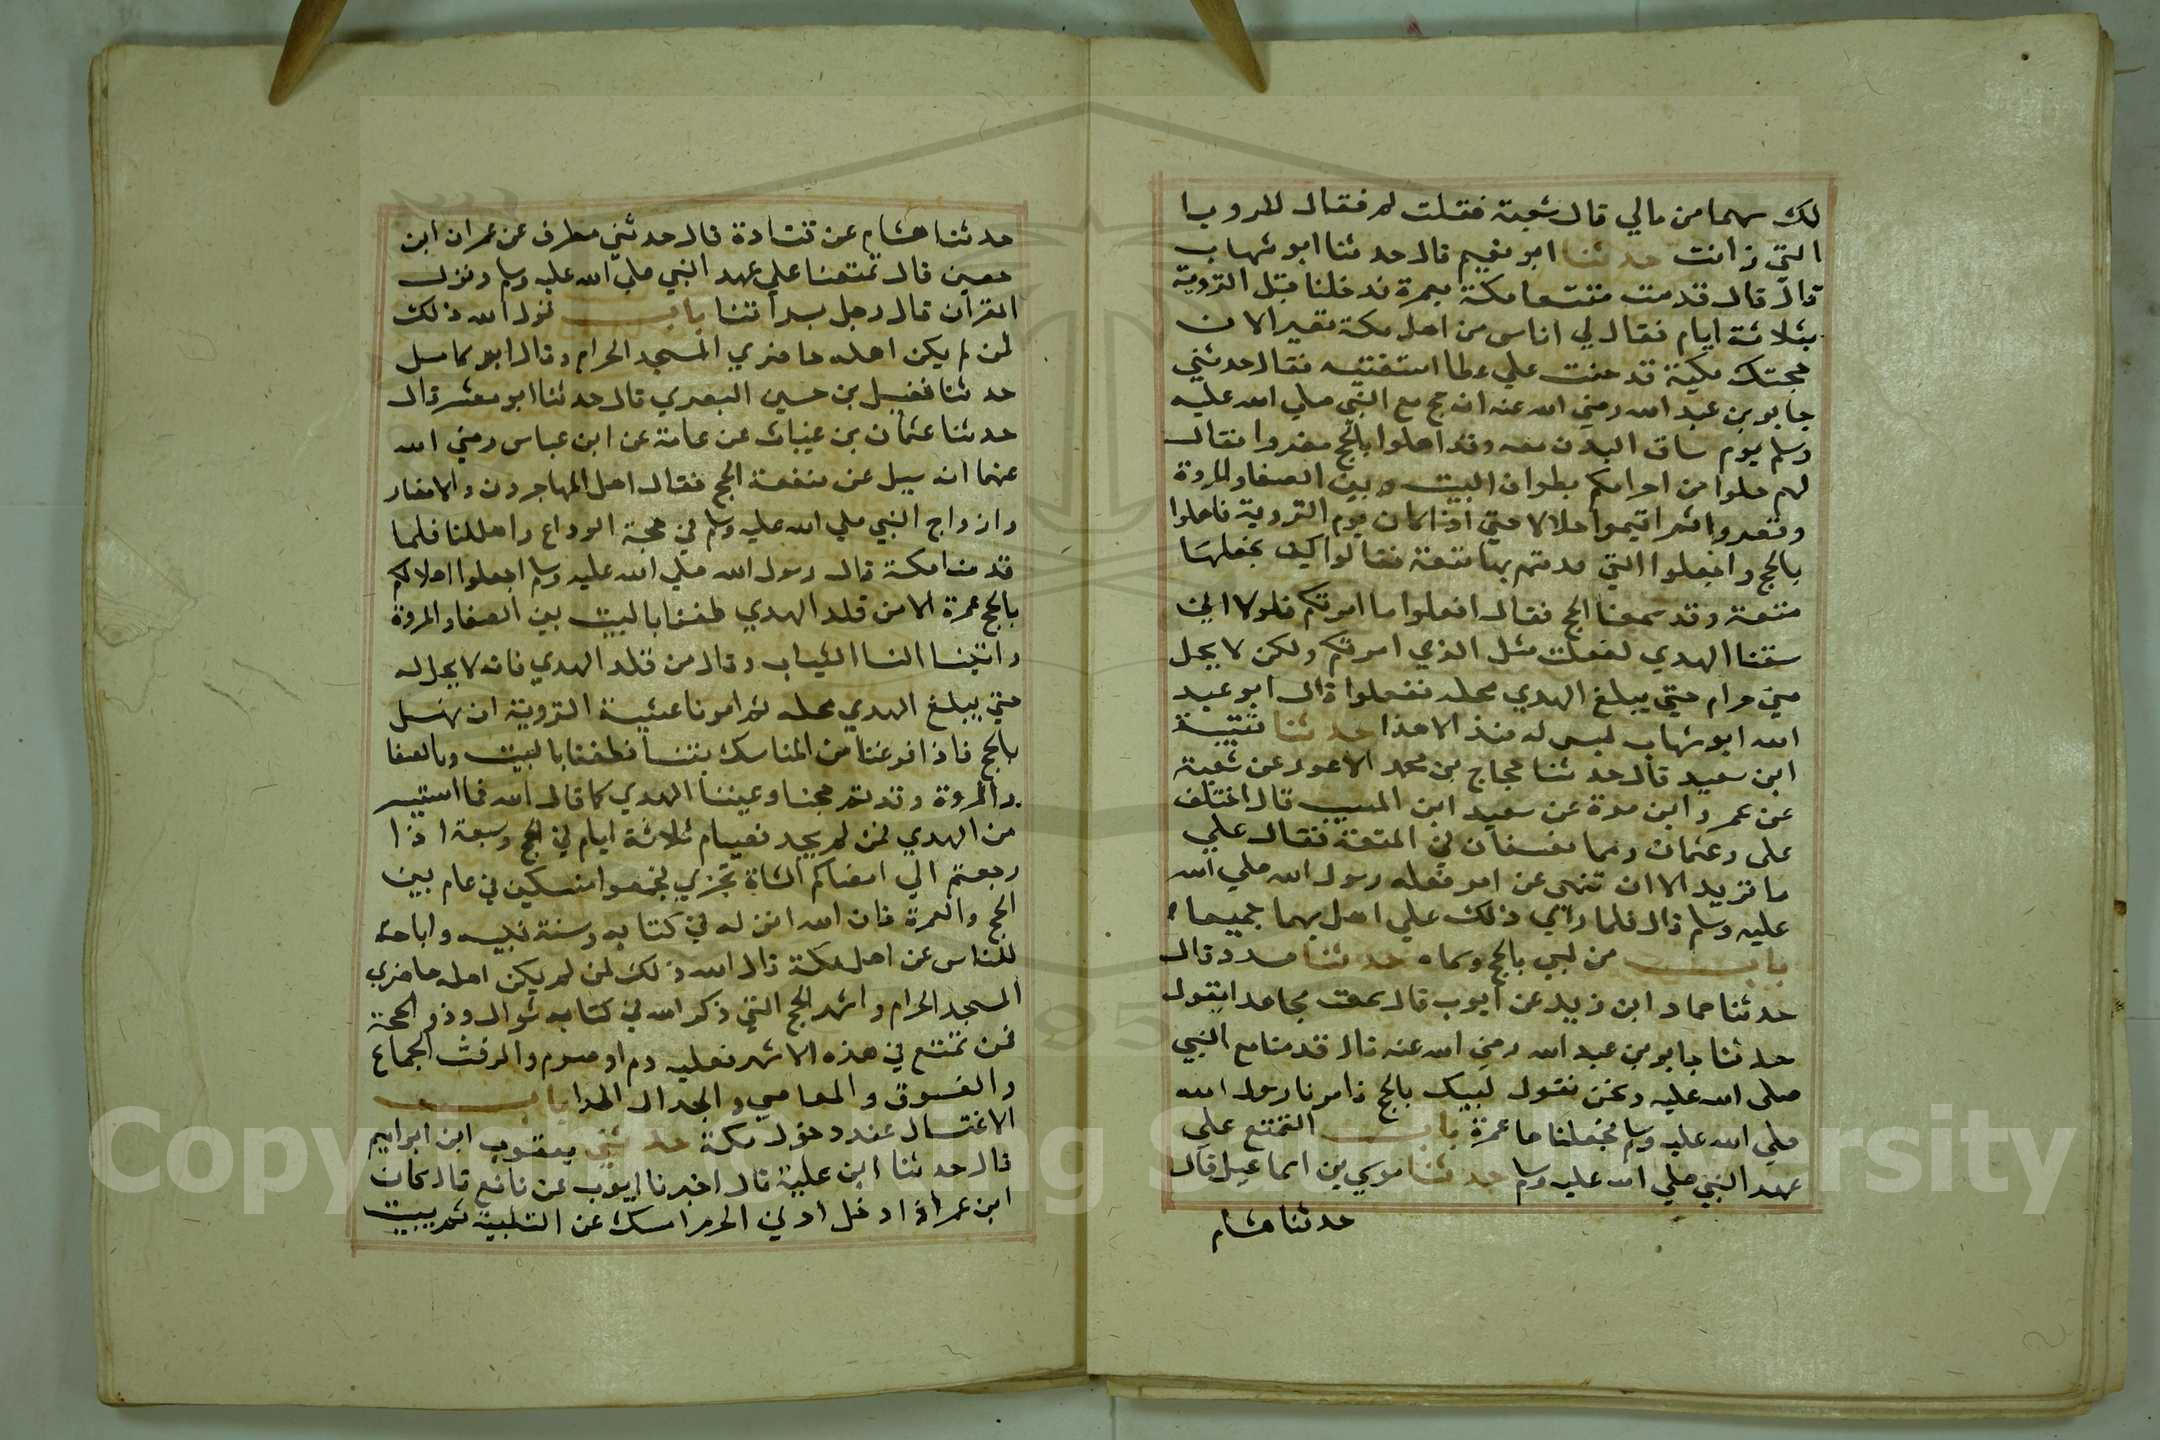 لك سهما من مالي قال شعبة فقلت لم فقال للرويا
التي رانت حدثنا ابو نعيم قال حدثنا ابو شهاب
قال قال قدمت متمتعا مكة بعمرة فدخلنا قبل التروية
بثلاثة ايام فقال لي اناس من اهل مكة تصير الان
حجتك مكية قد خلت علي عطا استفتيه فقال حدثني
جابر بن عبد الله رضي الله عنه انه حج مع النبي صلي الله عليه
وسلم يوم ساق البدن معه وقد اهلوا بالحج مفردا فقال
لهم حلوا من احرامكم بطواف البيت وبين الصفا والمروة
وقصروا ثم اقيموا حلالا حتي اذا كان يوم التروية فاهلوا
بالحج واجعلوا التي قدمتم بها متعة فقالوا كيف نجعلها
متعة وقد سمينا الحج فقال افعلوا ما امرتكم فلولا اني
سقنا الهدي لفعلت مثل الذي امرتكم ولكن لا يحل
مني حرام حتي يبلغ الهدي محله ففعلوا قال ابو عبد
الله ابو شهاب ليس له مسند الا هذا حدثنا قتيبة
ابن سعيد قال حدثنا حجاج بن محمد الاعور عن شعبة
عن عمرو ابن مرة عن سعيد ابن المسيب قال اختلف
علي وعثمان وهما بعسفان في المتعة فقال علي
ما تريد الا ان تنهي عن امر فعله رسول الله صلي الله
عليه وسلم قال فلما راي ذلك علي اهل بهما جميعا
باب من لبي بالحج وسماه حدثنا مسدد قال
حدثنا حماد ابن زيد عن ايوب قال سمعت مجاهدا يقول
حدثنا جابر بن عبد الله رضي الله عنه قال قدمنا مع النبي
صلى الله عليه ونحن نقول لبيك بالحج فامرنا رسول الله
صلي الله عليه وسلم فجعلناها عمرة باب التمتع علي
عهد النبي صلي الله عليه وسلم حدثنا موسي بن اسماعيل قال
حدثنا هشام
حدثنا هشام عن قتادة قال حدثني مطرف عن عمران ابن
حصين قال تمتعنا علي عهد النبي صلي الله عليه وسلم ونزل
القران قال رجل براتنا باب قول الله ذلك
لمن لم يكن اهله حاضري المسجد الحرام وقال ابو كامل
حدثنا فضيل بن حسين البصري قال حدثنا ابو معشر قال
حدثنا عثمان بن غياث عن عكرمة عن ابن عباس رضي الله
عنهما انه سيل عن متعة الحج فقال اهل المهاجرون والانصار
وازواج النبي صلي الله عليه وسلم في حجة الوداع واهللنا فلما
قدمنا مكة قال رسول الله صلي الله عليه وسلم اجعلوا اهلالكم
بالحج عمرة الا من قلد الهدي طفنا بالبيت بين الصفا والمروة
واتينا النسا الثياب وقال من قلد الهدي فانه لا يحل له
حتي يبلغ الهدي محله ثم امرنا عشية التروية ان نهل
بالحج فاذا فرغنا من المناسك بتنا فطفنا بالبيت وبالصفا
والمروة وقد تم حجنا وعينا الهدي كما قال الله فما استيسر
من الهدي فمن لم يجد فصيام ثلاثة ايام في الحج وسبعة اذا
رجعتم الي امصاركم الشاة تجزي فجمعوا نسكين في عام بين
الحج والعمرة فان الله انزله في كتابه وسنة نبيه واباحه
للناس عن اهل مكة قال الله ذلك لمن لم يكن اهله حاضري
المسجد الحرام واشهر الحج التي ذكر الله في كتابه شوال وذو الحجة
فمن تمتع في هذه الاشهر فعليه دم او صوم والرفث الجماع
والفسوق والمعاصي والجدال المرا باب
الاغتسال عند دخول مكة حدثني يعقوب ابن ابراهيم
قال حدثنا ابن علية قال اخبرنا ايوب عن نافع قال كان
ابن عمر اذا دخل ادني الحرم امسك عن التلبية ثم يبيت
Copyright © King Saud University